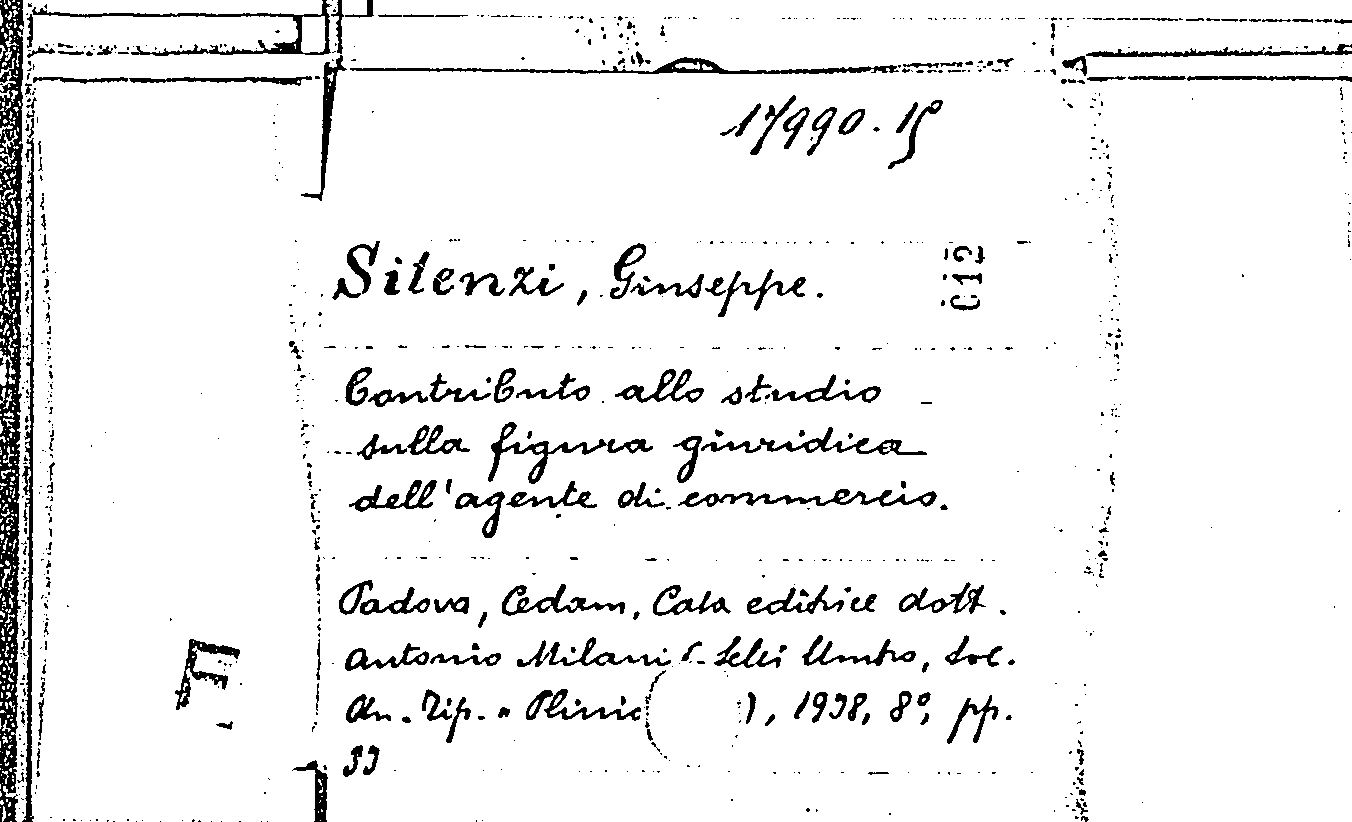 17990.15
Silenzi, Giuseppe.
012
Contributo allo studio
sulla figura giuridica
dell'agente di commercio.
Padova, Cedam, Casa editrice dott.
Antonio Milani (- Selci Umbro, Soc.
An. Tip. "Plinio ), 1938, 8°, pp.
33
F